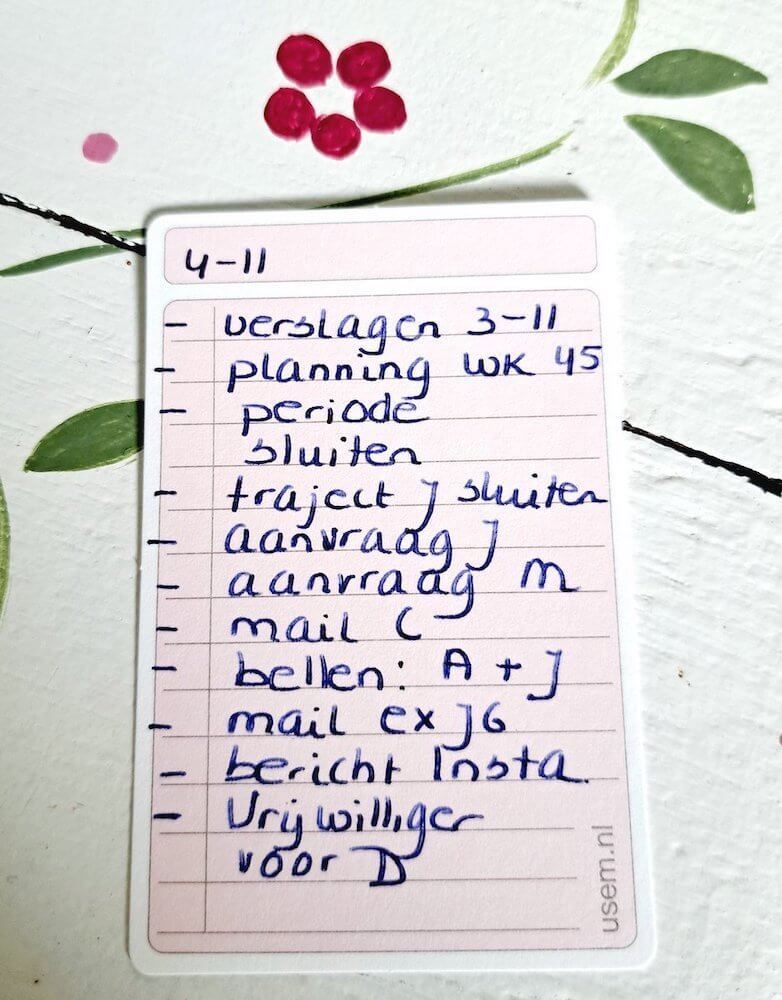 4-11
- verslagen 3-11
- planning wk 45
- periode
sluiten
- traject J sluiten
- aanvraag J
- aanvraag M
- mail C
- bellen: A + J
- mail ex JG
- bericht Insta.
- Vrijwilliger
voor D
usem.nl